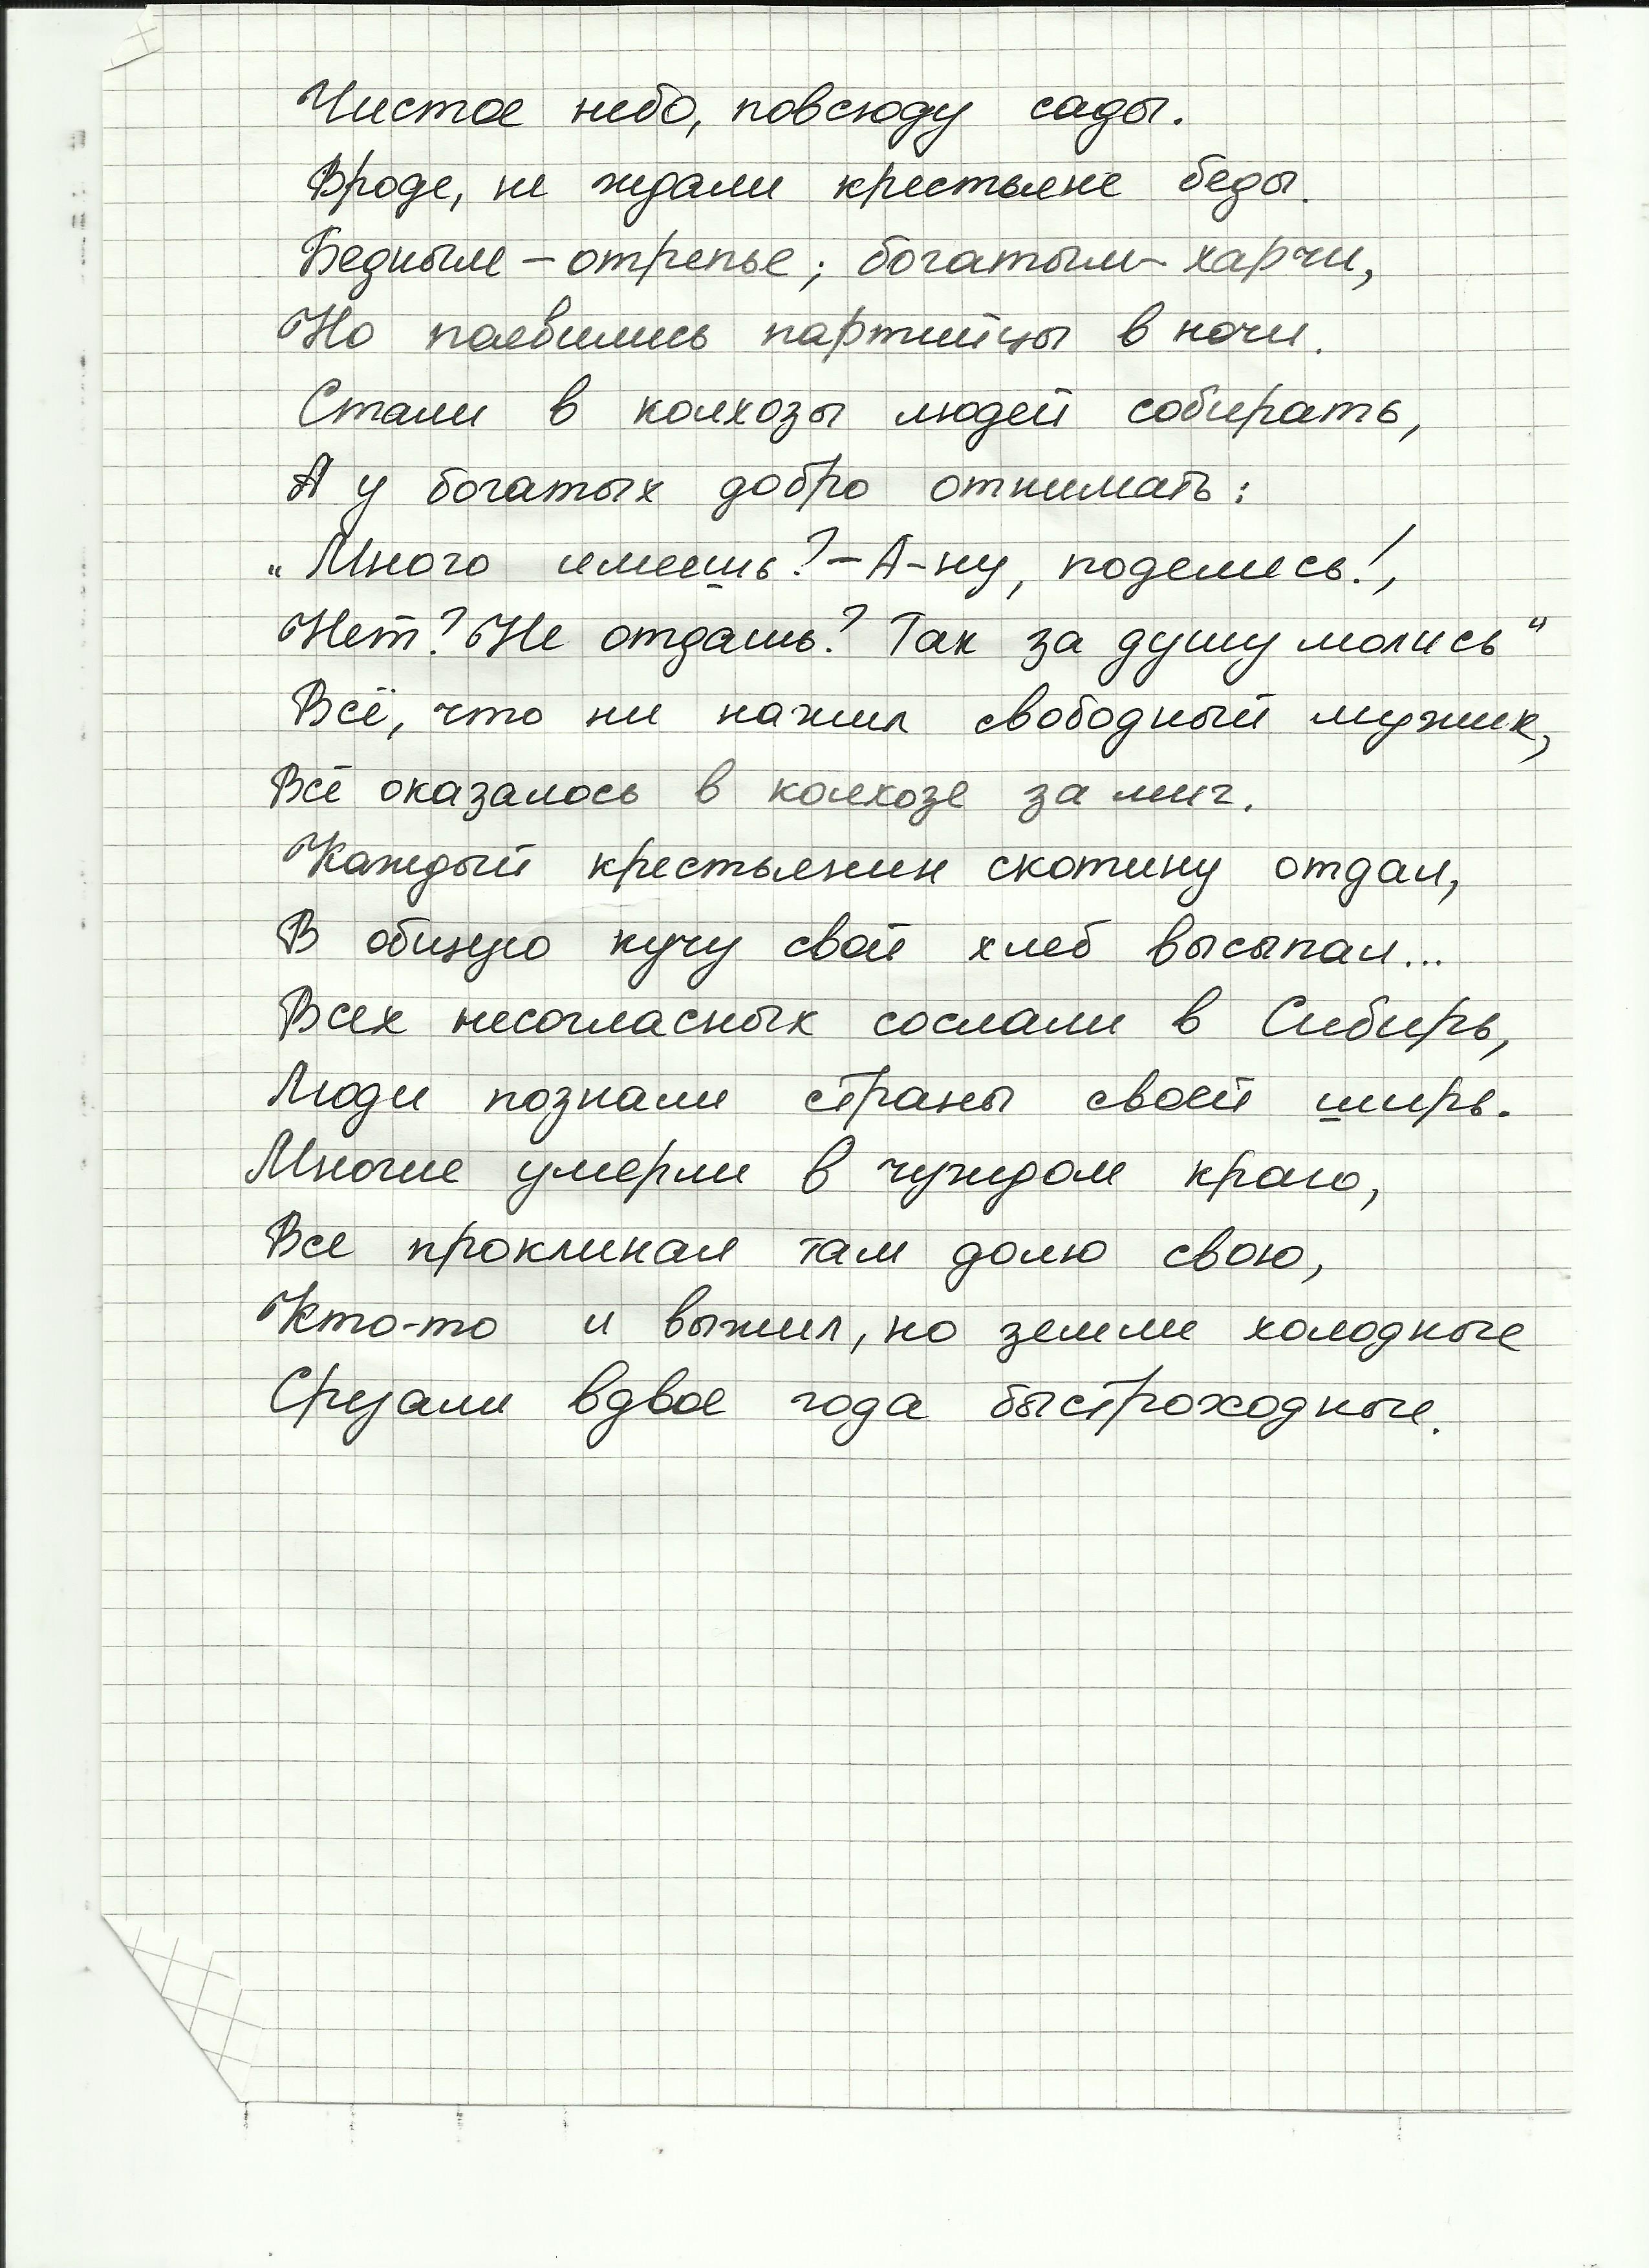 Чистое небо, повсюду сады.
Вроде, не ждали крестьяне беды.
Бедным – отрепье; богатым – харчи,
Но появились партийцы в ночи.
Стали в колхозы людей собирать,
А у богатых добро отнимать:
„Много имеешь? – А-ну, поделись!,
Нет? Не отдашь? Так за душу молись“
Всё, что ни нажил свободный мужик,
Всё оказалось в колхозе за миг.
Каждый крестьянин скотину отдал,
В общую кучу свой хлеб высыпал...
Всех несогласных сослали в Сибирь,
Люди познали страны своей ширь.
Многие умерли в чуждом краю,
Все проклинал там долю свою,
Кто-то и выжил, но земли холодные
Срезали вдвое года быстроходные.